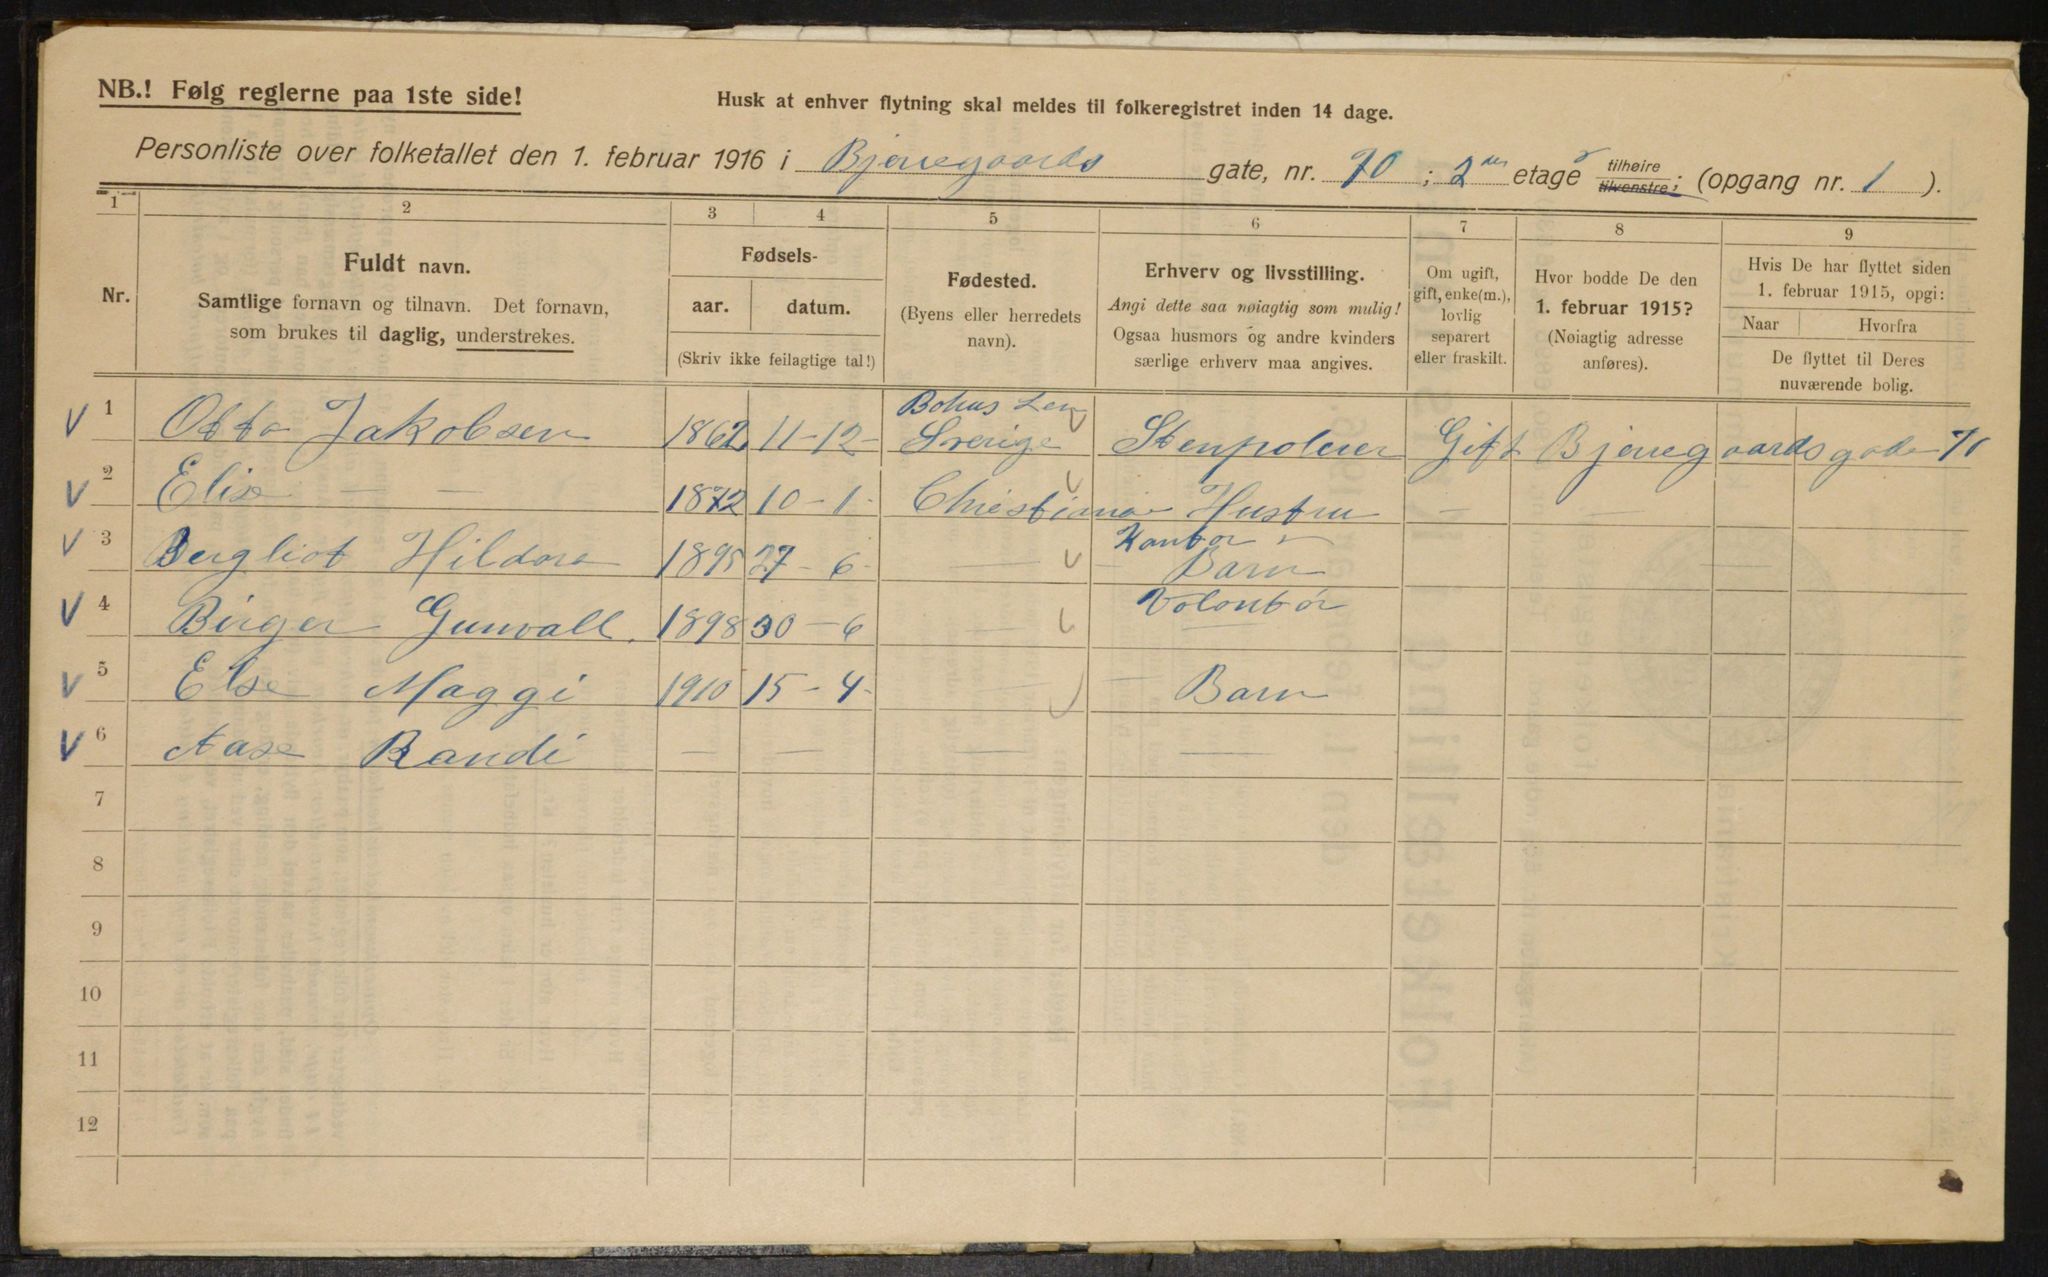 NB.! Følg reglerne paa 1ste side!
Husk at enhver flytning skal meldes til folkeregistret inden 14 dage.
Personliste over folketallet den 1. februar 1916 i Bjerregaards gate, nr. 70 ; 2den etage tilhøire tilvenstre; (opgang nr. 1 ).
1 2 3 4 5 6 7 8 9
Nr.
Fuldt navn.
Samtlige fornavn og tilnavn. Det fornavn,
som brukes til daglig, understrekes.
Fødsels-
aar. datum.
(Skriv ikke feilagtige tal!)
Fødested.
(Byens eller herredets
navn).
Erhverv og livsstilling.
Angi dette saa nøiagtig som mulig!
Ogsaa husmors og andre kvinders
særlige erhverv maa angives.
Om ugift,
gift, enke(m.),
lovlig
separert
eller fraskilt.
Hvor bodde De den
1. februar 1915?
(Nøiagtig adresse
anføres).
Hvis De har flyttet siden
1. februar 1915, opgi:
Naar Hvorfra
De flyttet til Deres
nuværende bolig.
Bohus Len
1 Otto Jakobsen 1862 11-12- Sverige Stenpolerer Gift Bjerregaardsgade 70
2 Elise — — 1872 10-1- Christiania Hustru — —
Kontor
3 Bergliot Hildora 1895 27-6- — Barn —
Volontør
4 Birger Gunvall. 1898 30-6 — —
5 Else Maggi 1910 15-4- — Barn
6 Aase Randi — — — —
7
8
9
10
11
12